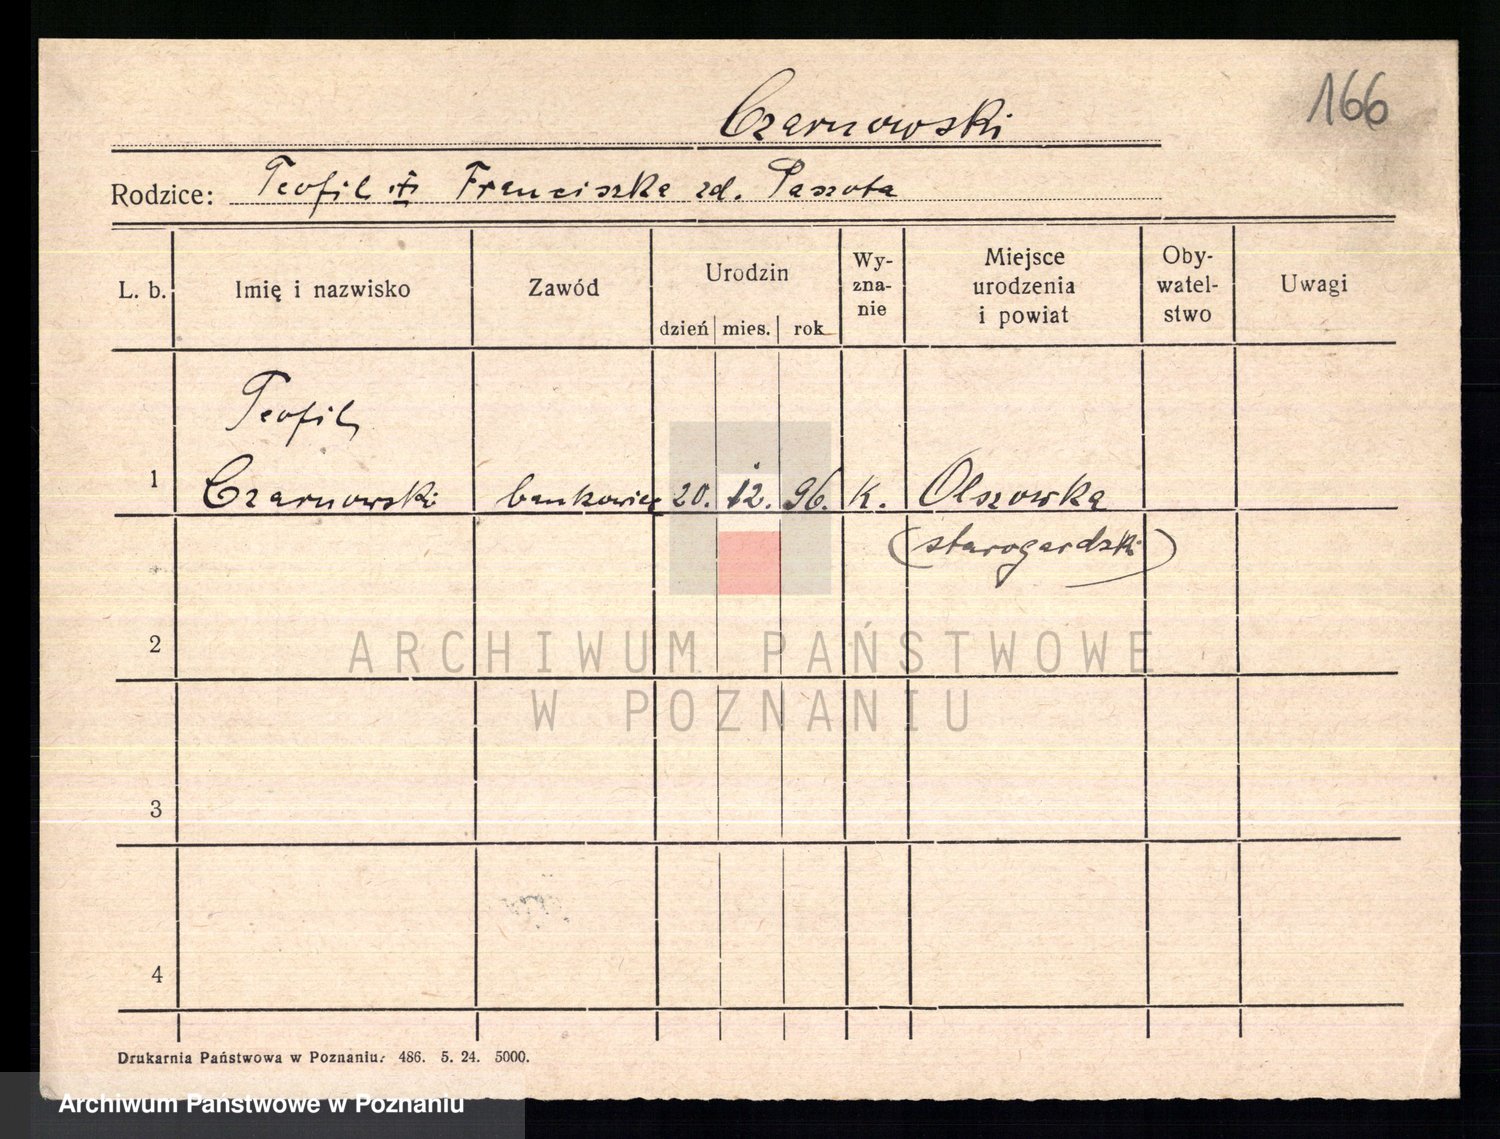 166
Czarnowski
Rodzice: Teofil i Franciszka zd. Paszota
L. b. Imię i nazwisko Zawód Urodzin dzień mies. rok Wy-zna-nie Miejsce urodzenia i powiat Oby-watel-stwo Uwagi
Teofil
1 Czarnowski bankowiec 20. 12. 96. k. Olszowka
(starogardzki)
2
ARCHIWUM PAŃSTWOWE
W POZNANIU
3
4
Drukarnia Państwowa w Poznaniu. 486. 5. 24. 5000.
Archiwum Państwowe w Poznaniu